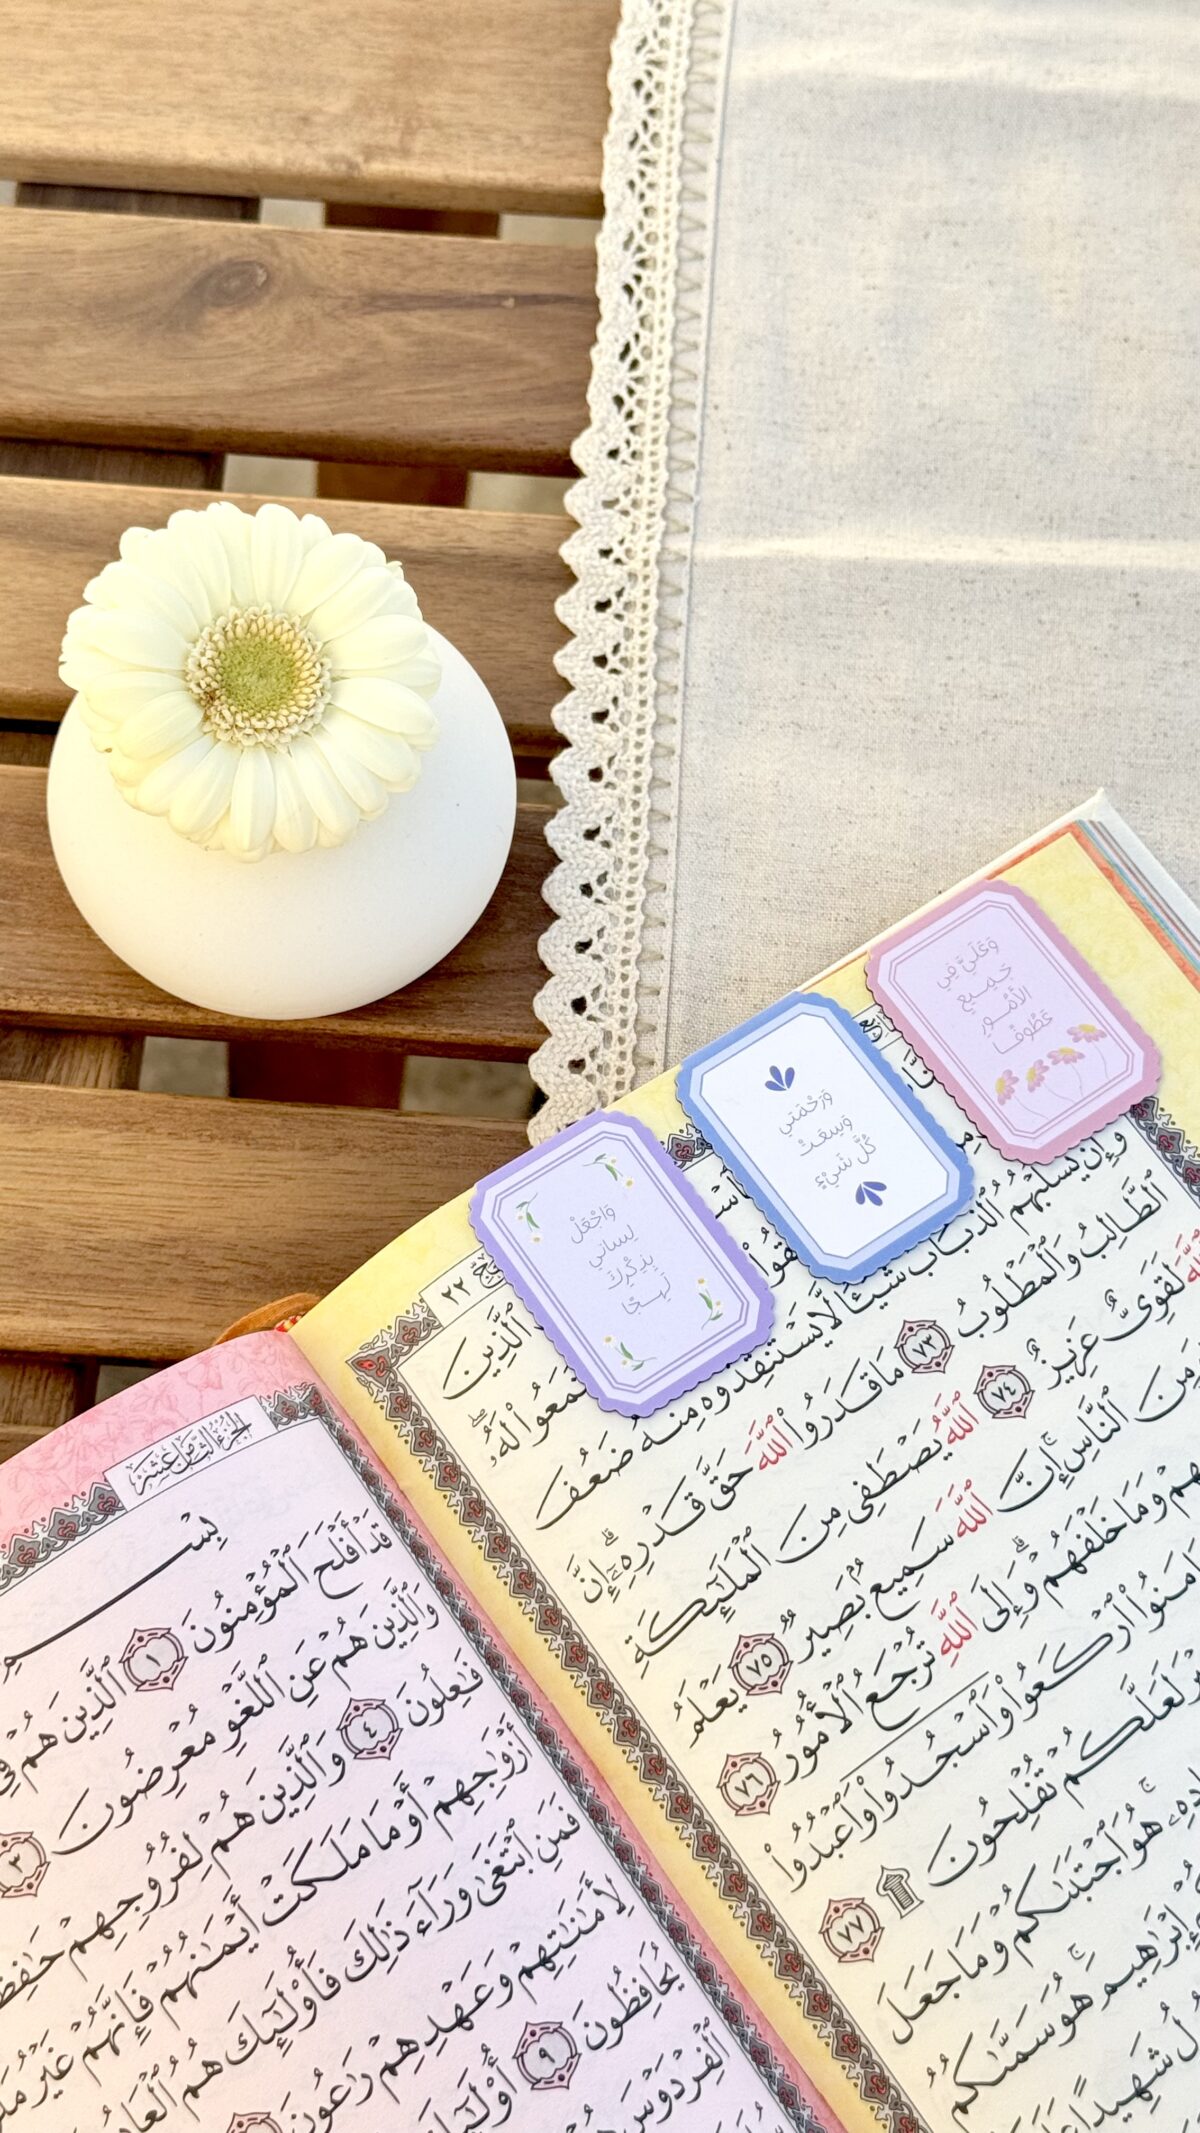 وَعَلَيَّ فِي
جَمِيعِ
الأُمُورِ
عَطُوفًا
وَرَحْمَتِي
وَسِعَتْ
كُلَّ شَيْءٍ
وَاجْعَلْ
لِسَانِي
بِذِكْرِكَ
لَهِجًا
٢٢
ٱلَّذِينَ
وَإِن يَسْلُبْهُمُ ٱلذُّبَابُ شَيْـًٔا لَّا يَسْتَنقِذُوهُ مِنْهُ ضَعُفَ
ٱلطَّالِبُ وَٱلْمَطْلُوبُ ٧٣ مَا قَدَرُوا۟ ٱللَّهَ حَقَّ قَدْرِهِۦٓ إِنَّ
ٱللَّهَ لَقَوِىٌّ عَزِيزٌ ٧٤ ٱللَّهُ يَصْطَفِى مِنَ ٱلْمَلَـٰٓئِكَةِ
وَمِنَ ٱلنَّاسِ إِنَّ ٱللَّهَ سَمِيعٌۢ بَصِيرٌ ٧٥ يَعْلَمُ
وَمَا خَلْفَهُمْ وَإِلَى ٱللَّهِ تُرْجَعُ ٱلْأُمُورُ ٧٦
ٱرْكَعُوا۟ وَٱسْجُدُوا۟ وَٱعْبُدُوا۟
لَعَلَّكُمْ تُفْلِحُونَ ۩ ٧٧
هُوَ ٱجْتَبَىٰكُمْ وَمَا جَعَلَ
إِبْرَٰهِيمَ هُوَ سَمَّىٰكُمُ
شَهِيدًا
الجزء الثامن عشر
بِسْمِ
قَدْ أَفْلَحَ ٱلْمُؤْمِنُونَ ١ ٱلَّذِينَ هُمْ فِى
وَٱلَّذِينَ هُمْ عَنِ ٱللَّغْوِ مُعْرِضُونَ ٣
فَـٰعِلُونَ ٤ وَٱلَّذِينَ هُمْ لِفُرُوجِهِمْ حَـٰفِظُونَ
أَزْوَٰجِهِمْ أَوْ مَا مَلَكَتْ أَيْمَـٰنُهُمْ فَإِنَّهُمْ غَيْرُ
فَمَنِ ٱبْتَغَىٰ وَرَآءَ ذَٰلِكَ فَأُو۟لَـٰٓئِكَ هُمُ ٱلْعَادُونَ
لِأَمَـٰنَـٰتِهِمْ وَعَهْدِهِمْ رَٰعُونَ
يُحَافِظُونَ ٩ أُو۟لَـٰٓئِكَ
ٱلْفِرْدَوْسَ